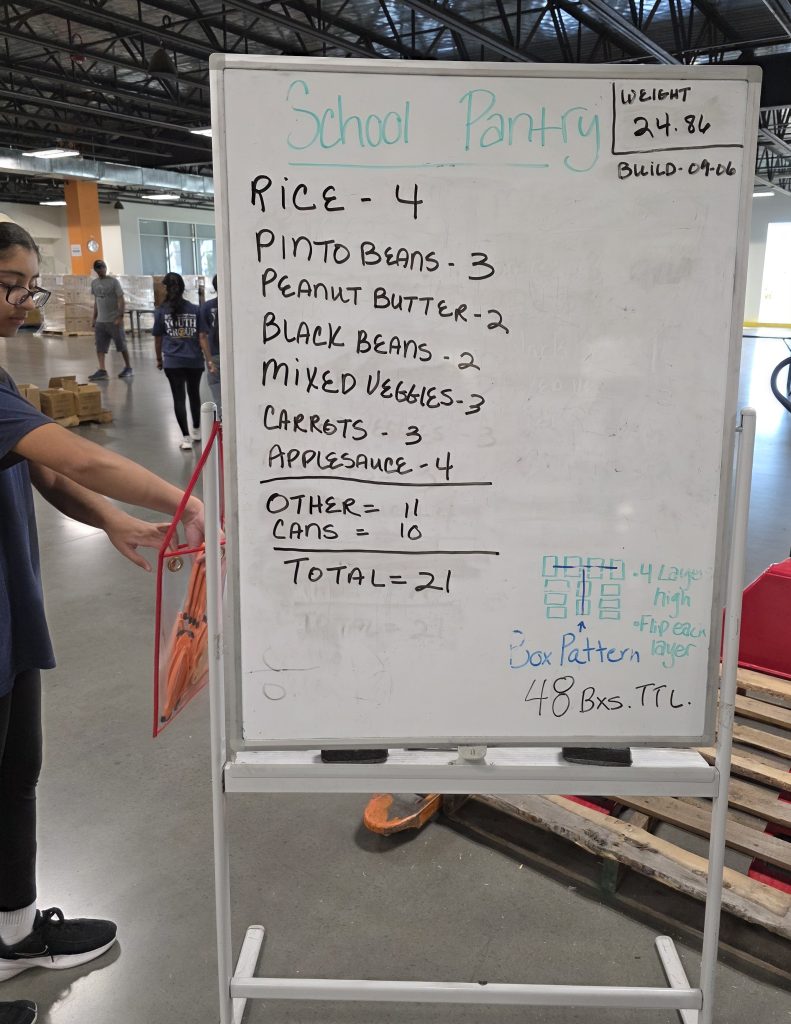 School Pantry
WEIGHT
24.86
BUILD-09-06
RICE - 4
PINTO BEANS - 3
PEANUT BUTTER - 2
BLACK BEANS - 2
MIXED VEGGIES - 3
CARROTS - 3
APPLESAUCE - 4
OTHER = 11
CANS = 10
TOTAL = 21
• 4 Layer
high
• Flip each
layer
Box Pattern
48 Bxs. TTL.
YOUTH
GROUP